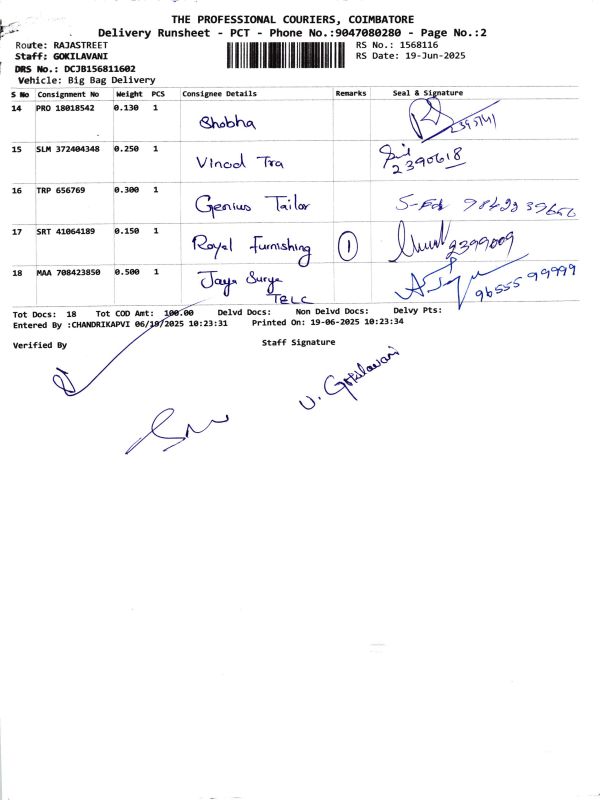 THE PROFESSIONAL COURIERS, COIMBATORE
Delivery Runsheet - PCT - Phone No.:9047080280 - Page No.:2
Route: RAJASTREET
RS No.: 1568116
Staff: GOKILAVANI
RS Date: 19-Jun-2025
DRS No.: DCJB156811602
Vehicle: Big Bag Delivery
S No Consignment No Weight PCS Consignee Details Remarks Seal & Signature
14 PRO 18018542 0.130 1 Shobha
15 SLM 372404348 0.250 1 Vinod Tra 2390618
16 TRP 656769 0.300 1 Genius Tailor
17 SRT 41064189 0.150 1 Royal Furnishing 1 2399009
18 MAA 708423850 0.500 1 Jaya Surya 96555 99999
Tot Docs: 18 Tot COD Amt: 100.00 Delvd Docs: Non Delvd Docs: Delvy Pts:
Entered By :CHANDRIKAPVI 06/19/2025 10:23:31 Printed On: 19-06-2025 10:23:34
Verified By
Staff Signature
V. Gokilavani